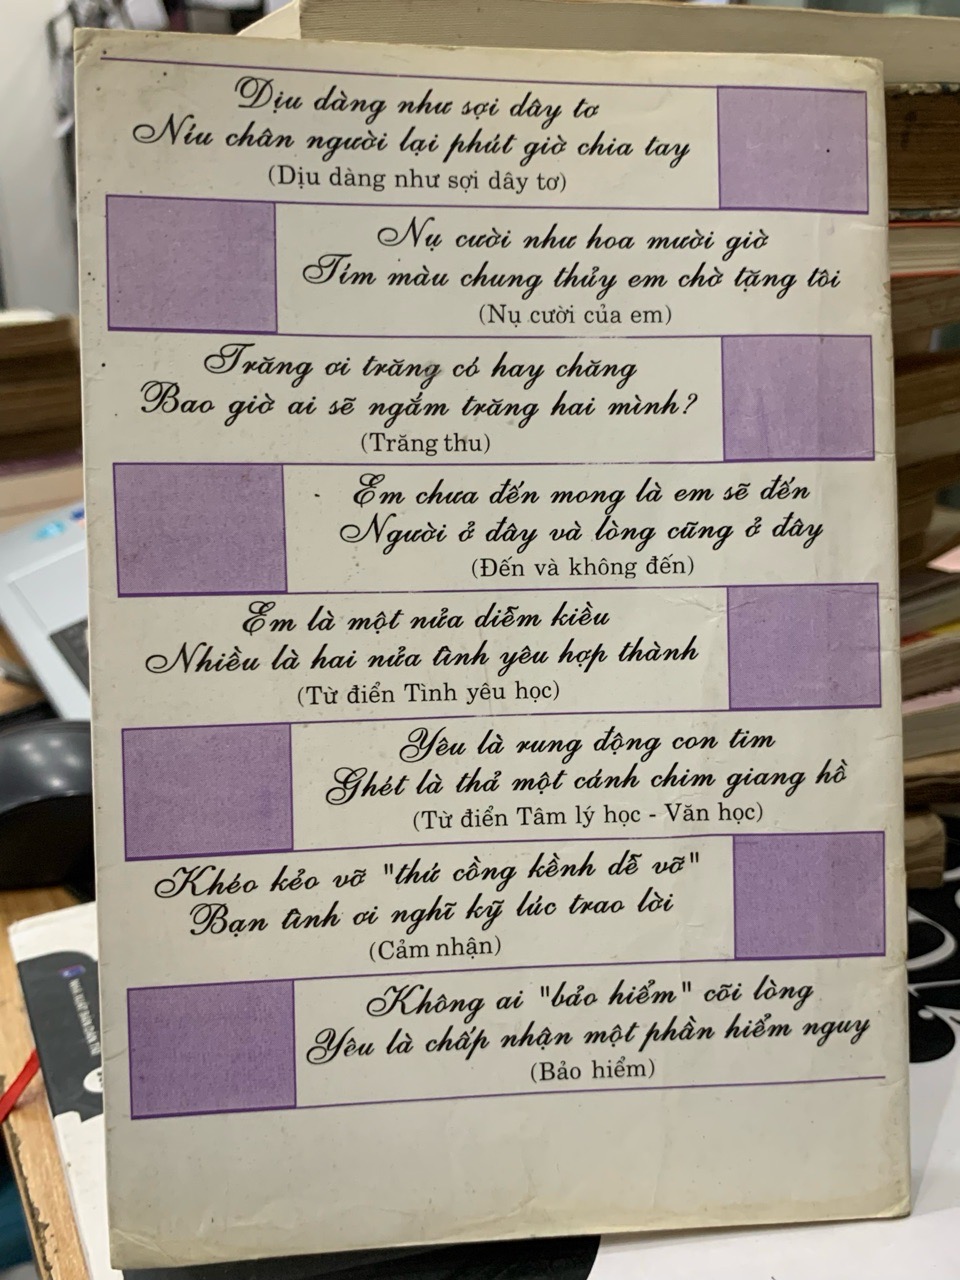 Dịu dàng như sợi dây tơ
Níu chân người lại phút giờ chia tay
(Dịu dàng như sợi dây tơ)
Nụ cười như hoa mười giờ
Tím màu chung thủy em chờ tặng tôi
(Nụ cười của em)
Trăng ơi trăng có hay chăng
Bao giờ ai sẽ ngắm trăng hai mình?
(Trăng thu)
Em chưa đến mong là em sẽ đến
Người ở đây và lòng cũng ở đây
(Đến và không đến)
Em là một nửa diễm kiều
Nhiều là hai nửa tình yêu hợp thành
(Từ điển Tình yêu học)
Yêu là rung động con tim
Ghét là thả một cánh chim giang hồ
(Từ điển Tâm lý học - Văn học)
Khéo kẻo vỡ "thứ cồng kềnh dễ vỡ"
Bạn tình ơi nghĩ kỹ lúc trao lời
(Cảm nhận)
Không ai "bảo hiểm" cõi lòng
Yêu là chấp nhận một phần hiểm nguy
(Bảo hiểm)